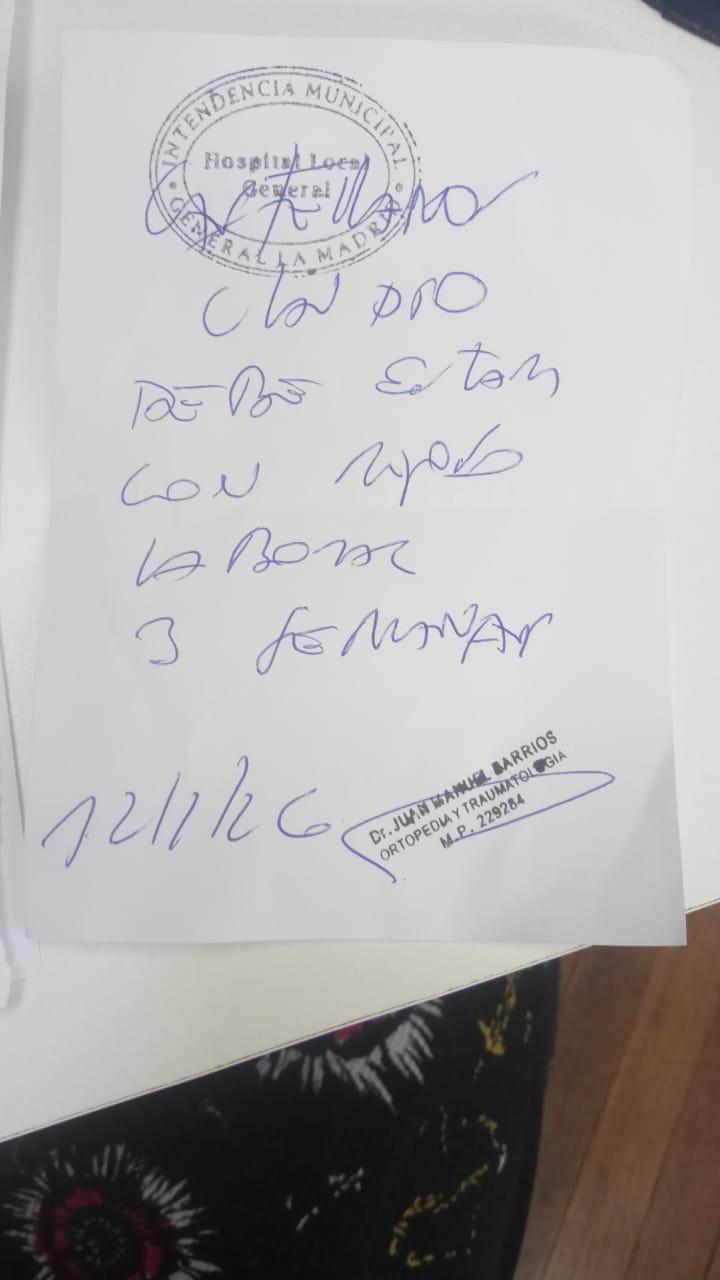 INTENDENCIA MUNICIPAL
Hospital Local
General
GENERAL LA MADRID
CLAUDIO
DEBE ESTAR
CON REPOSO
LABORAL
3 SEMANAS
12/1/26
Dr. JUAN MANUEL BARRIOS
ORTOPEDIA Y TRAUMATOLOGIA
M.P. 229264